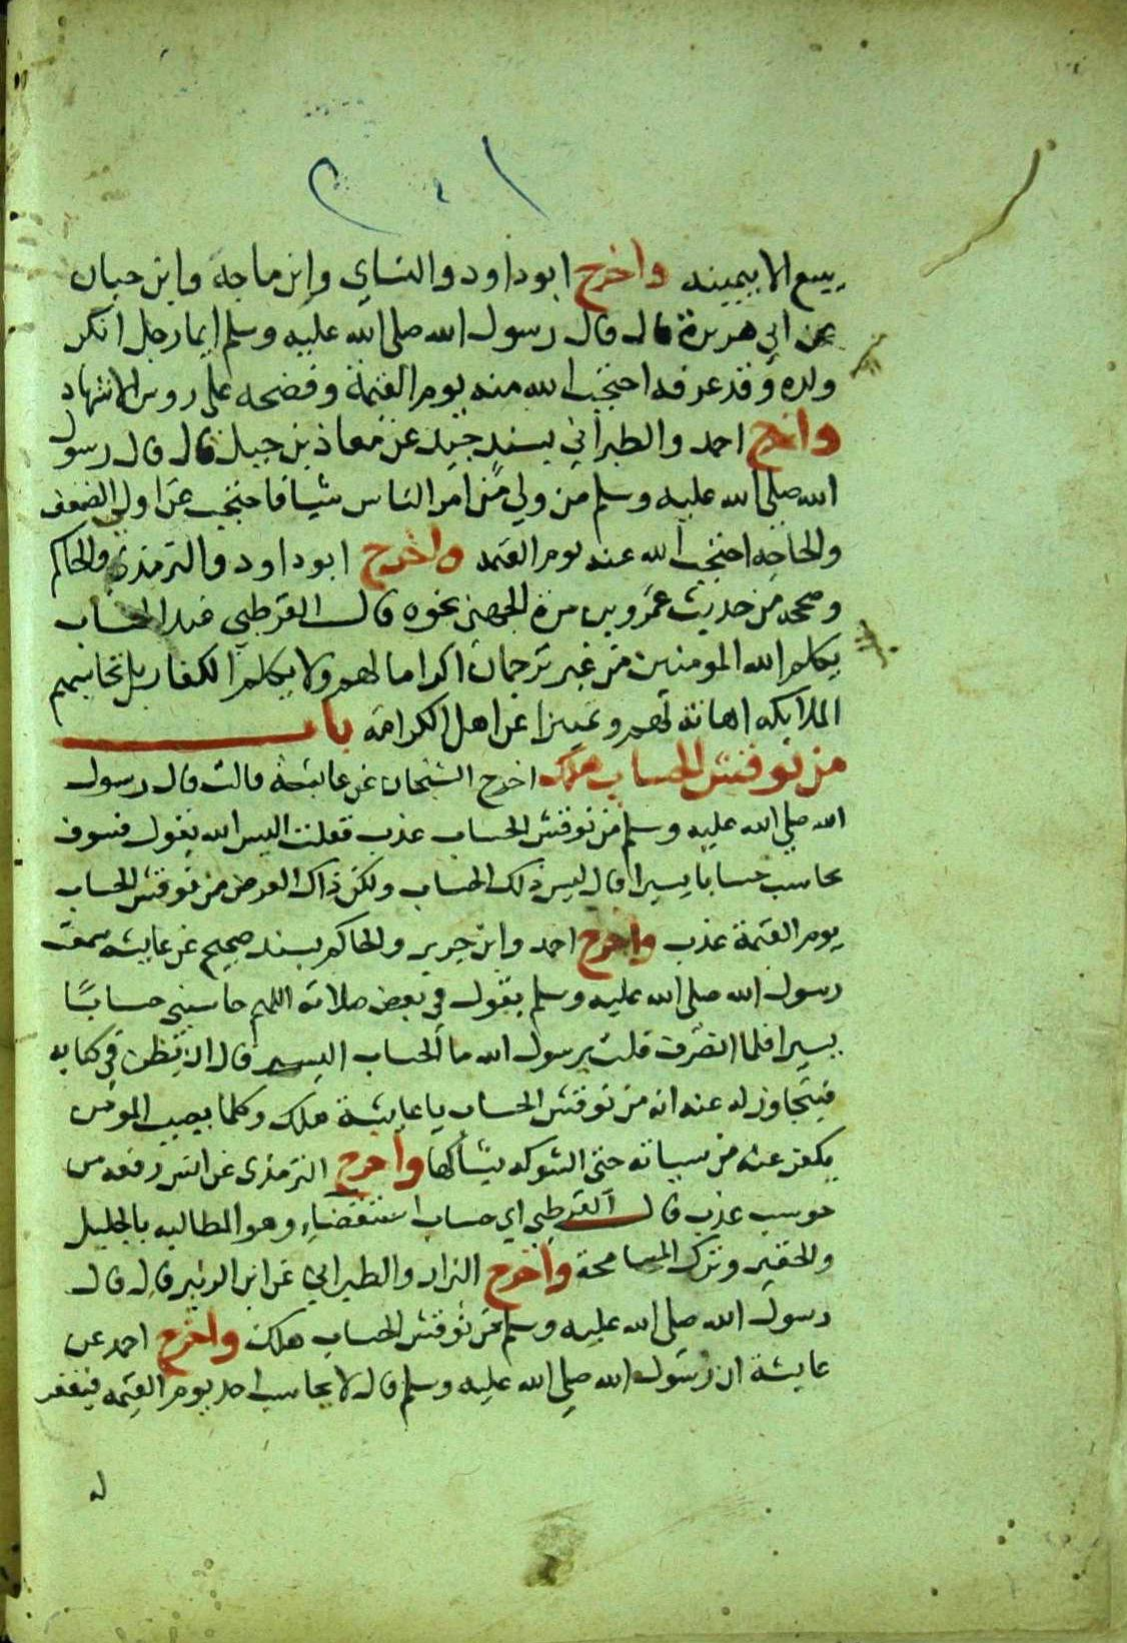 يسع الابيمينه واخرج ابوداود والنساي وابن ماجة وابن حبان
عن ابي هريرة قال قال رسول الله صلى الله عليه وسلم ايما رجل انكر
ولده وقد عرفه احتجب الله منه يوم القيمة وفضحه على روس الاشهاد
واخرج احمد والطبراني بسند جيد عن معاذ بن جبل قال قال رسول
الله صلى الله عليه وسلم من ولي من امر الناس شيا فاحتجب عن اولي الضعف
والحاجه احتجب الله عنه يوم القيمه واخرج ابوداود والترمذي والحاكم
وصححه من حديث عمرو بن مرة الجهني نحوه قال القرطبي عند الحساب
يكلم الله المومنين من غير ترجمان اكراما لهم ولا يكلم الكفار بل تحاسبهم
الملايكه اهانة لهم وتمييزا عن اهل الكرامة باب
من نوقش الحساب هلك اخرج الشيخان عن عايشة قالت قال رسول
الله صلى الله عليه وسلم من نوقش الحساب عذب فقلت اليس الله يقول فسوف
يحاسب حسابا يسيرا قال ليس ذلك الحساب ولكن ذاك العرض من نوقش الحساب
يوم القيمة عذب واخرج احمد وابن جرير والحاكم بسند صحيح عن عايشه سمعت
رسول الله صلى الله عليه وسلم يقول في بعض صلاته اللهم حاسبني حسابًا
يسيرا فلما انصرف قلت يرسول الله ما الحساب اليسير قال ان ينظر في كتابه
فيتجاوز له عنه انه من نوقش الحساب يا عايشة هلك وكلما يصيب المومن
يكفر عنه من سياته حتى الشوكه يشاكها واخرج الترمذي عن انس رفعه من
حوسب عذب قال القرطبي اي حساب استقضاء وهو المطالبه بالجليل
والحقير وترك المسامحة واخرج البزار والطبراني عن ابن الزبير قال قال
رسول الله صلى الله عليه وسلم من نوقش الحساب هلك واخرج احمد عن
عايشة ان رسول الله صلى الله عليه وسلم قال لا يحاسب احد يوم القيمه فيغفر
له